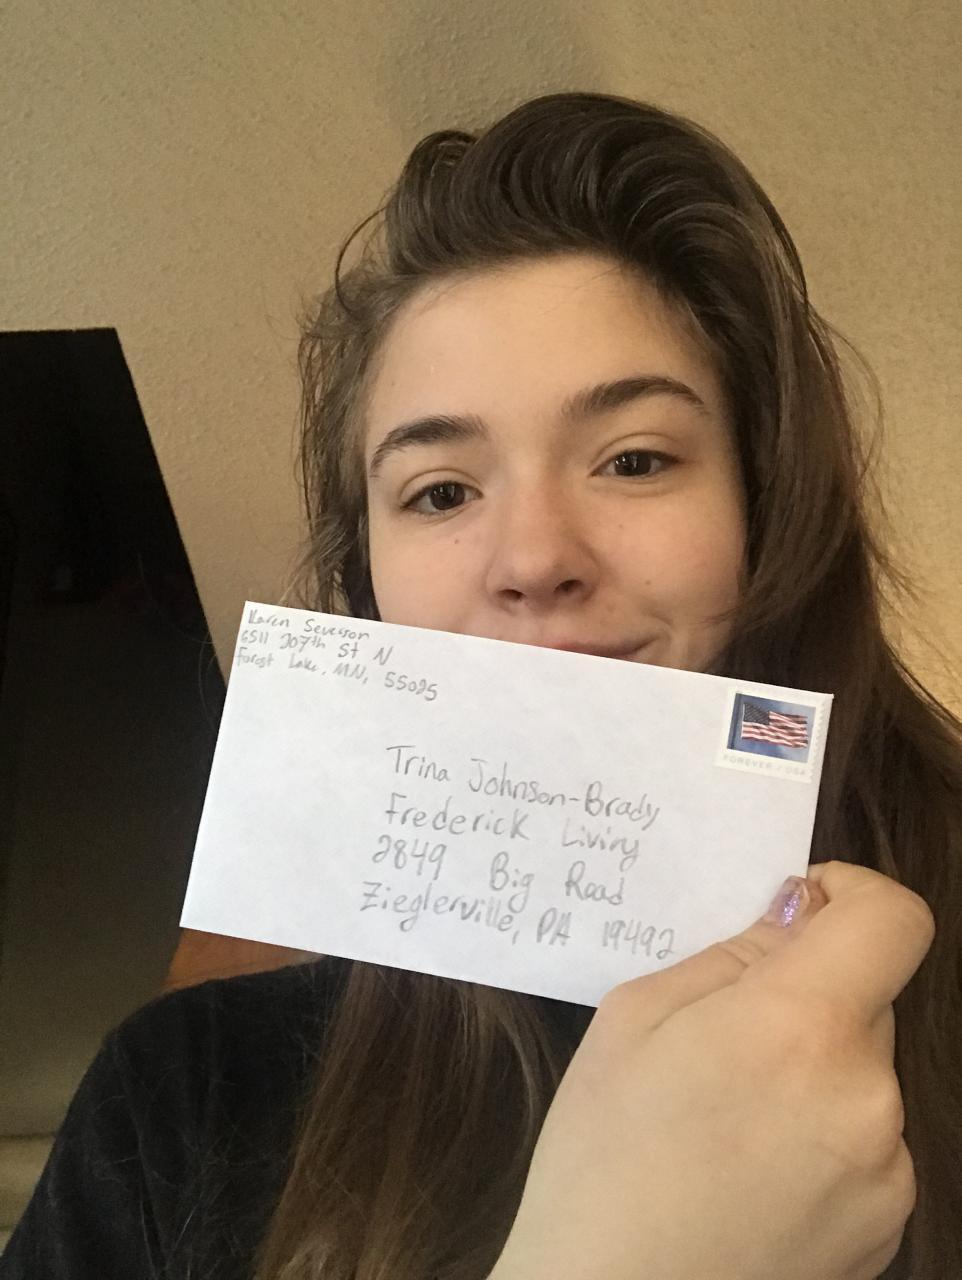 Karen Severson
6511 207th St N
Forest Lake, MN, 55025
FOREVER / USA
Trina Johnson-Brady
Frederick Living
2849 Big Road
Zieglerville, PA 19492